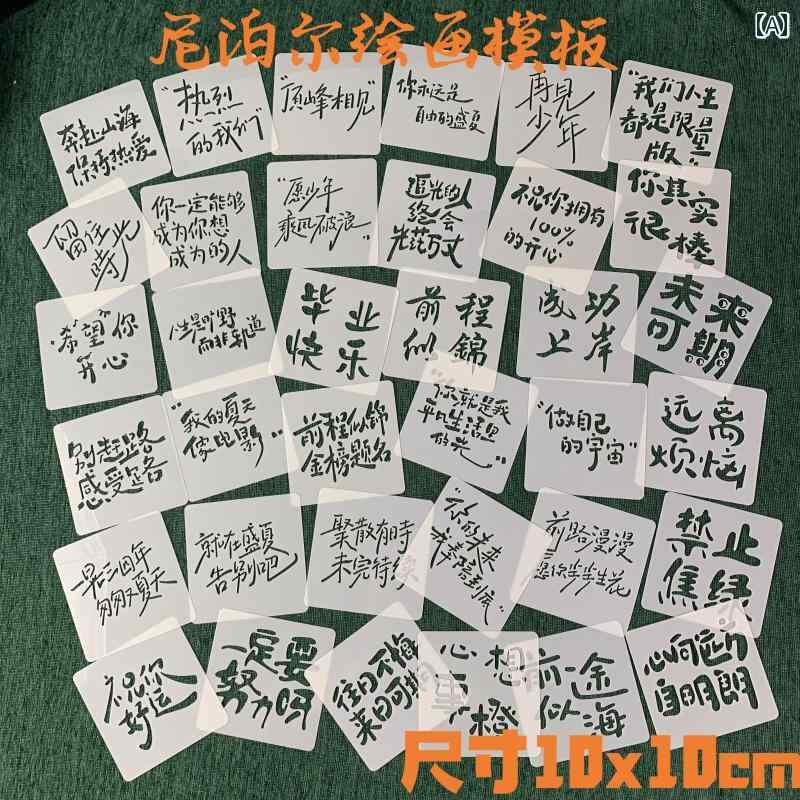 尼泊尔绘画模板
【A】
奔赴山海
保持热爱
"热烈
的我们"
"顶峰相见"
你永远是
自由的盛夏
再見
少年
"我们人生
都是限量
版"
留住
時光
你一定能够
成为你想
成为的人
"愿少年
乘风破浪"
追光的人
终会
光芒万丈
祝你拥有
100%
的开心
你其实
很棒
"希望"你
开心
人生是旷野
而非轨道
毕业
快乐
前程
似錦
成功
上岸
未来
可期
别赶路
感受路
"我的夏天
像电影"
前程似锦
金榜题名
"你就是我
平凡生活里
的光"
"做自己
的宇宙"
远离
烦恼
一晃三四年
匆匆又夏天
就在盛夏
告别吧
聚散有時
未完待续
"你的未来
我奉陪到底"
前路漫漫
愿你步步生花
禁止
焦绿
祝你
好运
一定要
努力呀
往日不悔
来日可期
心想
事橙
前途
似海
心向远方
自明朗
尺寸10x10cm